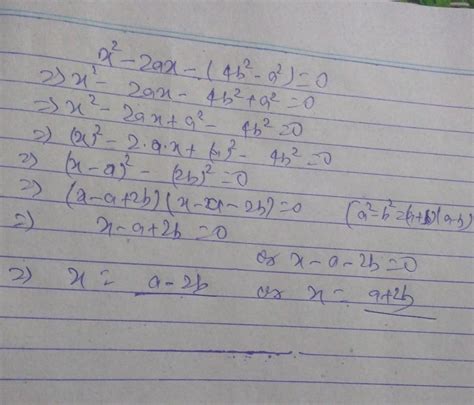 x² - 2ax - (4b² - a²) = 0
=> x² - 2ax - 4b² + a² = 0
=> x² - 2ax + a² - 4b² = 0
=> (x)² - 2·a·x + (a)² - 4b² = 0
=> (x-a)² - (2b)² = 0
=> (x-a+2b)(x-a-2b) = 0 (a²-b²=(a+b)(a-b)
=> x-a+2b = 0
or x-a-2b = 0
=> x = a-2b or x = a+2b